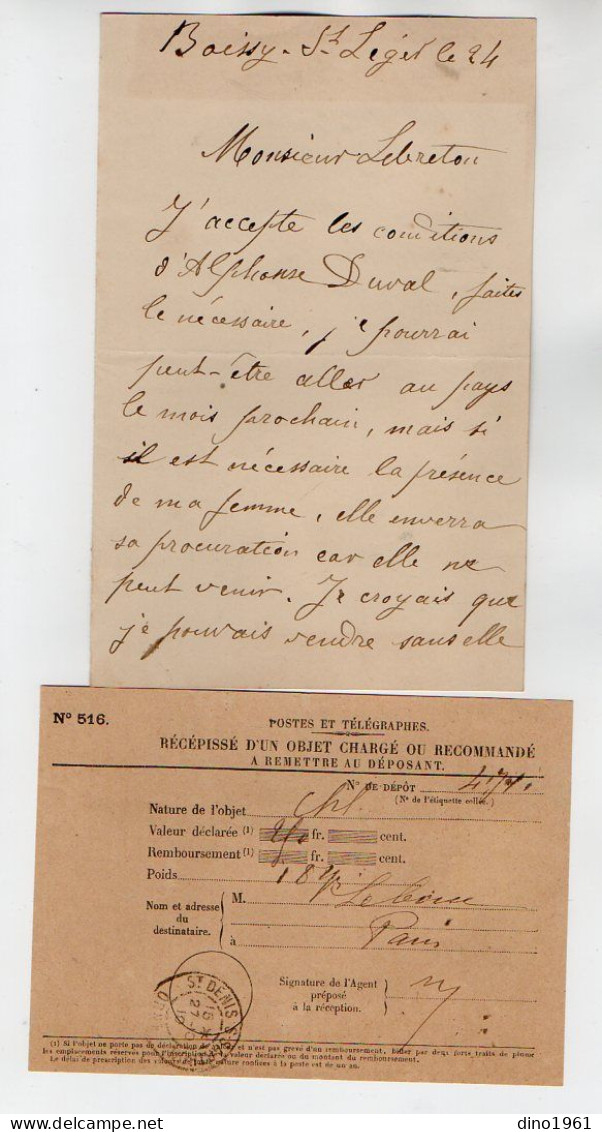 Boissy-St Léger le 24
Monsieur Lebreton
J'accepte les conditions
d'Alphonse Duval, faites
le nécessaire, je pourrai
peut-être aller au pays
le mois prochain, mais si
il est nécessaire la présence
de ma femme, elle enverra
sa procuration car elle ne
peut venir. Je croyais que
je pouvais vendre sans elle
N° 516.
POSTES ET TÉLÉGRAPHES.
RÉCÉPISSÉ D'UN OBJET CHARGÉ OU RECOMMANDÉ
A REMETTRE AU DÉPOSANT.
N° DE DÉPÔT
(N° de l'étiquette collée.)
Nature de l'objet
Valeur déclarée (1) fr. cent.
Remboursement (1) fr. cent.
Poids
Nom et adresse
du
destinataire.
M.
à Paris
Signature de l'Agent
préposé
à la réception.
ST DENIS
(1) Si l'objet ne porte pas de déclaration de valeur et n'est pas grevé d'un remboursement, biffer par deux forts traits de plume
les emplacements réservés pour l'inscription de la valeur déclarée ou du montant du remboursement.
Le délai de prescription des valeurs de toute nature confiées à la poste est de un an.
dino1961